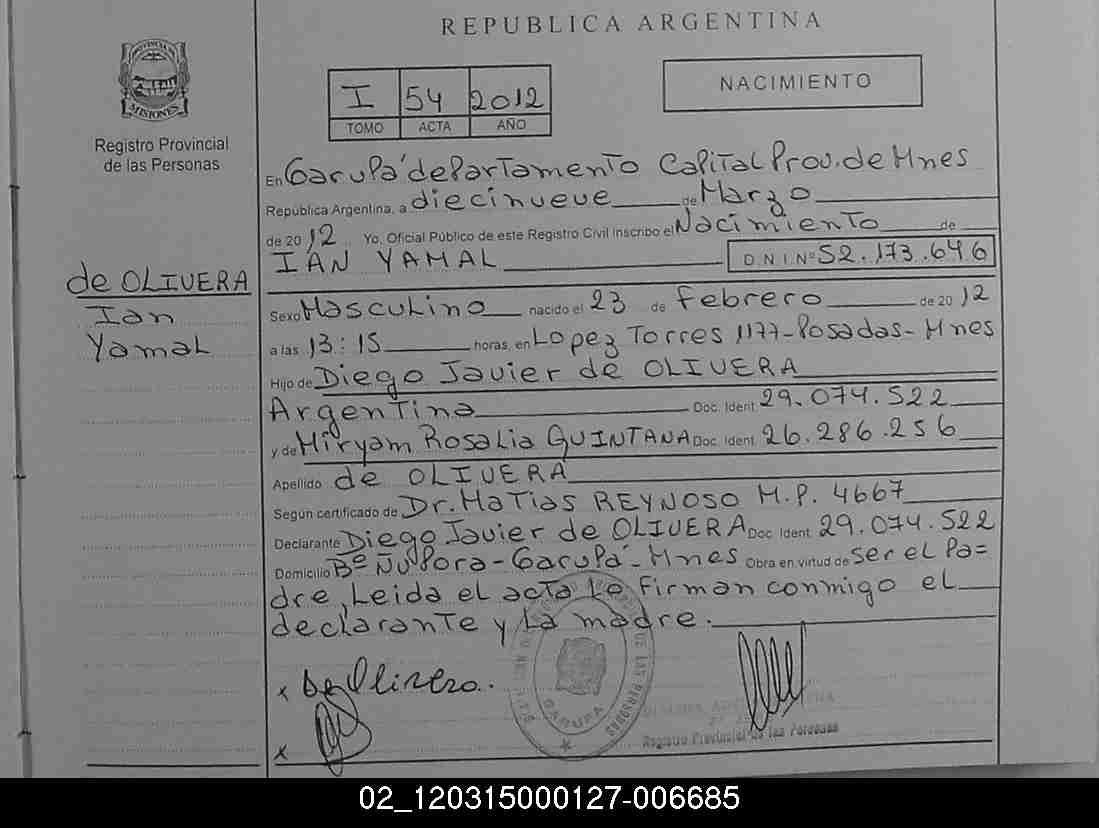 REPUBLICA ARGENTINA
PROVINCIA DE
MISIONES
Registro Provincial
de las Personas
I 54 2012
TOMO ACTA AÑO
NACIMIENTO
En Garupá departamento Capital Prov. de Mnes
República Argentina, a diecinueve de Marzo
de 2012 Yo, Oficial Público de este Registro Civil inscribo el Nacimiento de
IAN YAMAL D.N.I. Nº 52.173.646
de OLIVERA
Ian
Yamal
Sexo Masculino nacido el 23 de Febrero de 2012
a las 13:15 horas, en Lopez Torres 1177-Posadas-Mnes
Hijo de Diego Javier de OLIVERA
Argentina Doc. Ident. 29.074.522
y de Miryam Rosalia QUINTANA Doc. Ident. 26.286.256
Apellido de OLIVERA
Según certificado de Dr. Matias REYNOSO M.P. 4667
Declarante Diego Javier de OLIVERA Doc. Ident. 29.074.522
Domicilio Bº Ñu Pora-Garupá-Mnes Obra en virtud de ser el Pa=
dre, Leida el acta lo firman conmigo el
declarante y la madre.
x De Olivera.
x
DE LAS PERSONAS
GARUPA
Registro Provincial de las Personas
02_120315000127-006685